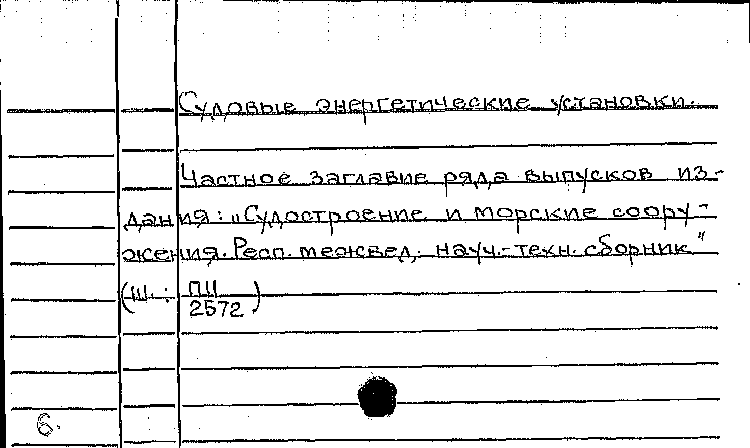 Судовые энергетические установки.
Частное заглавие ряда выпусков из-
дания: „Судостроение и морские соору-
жения. Респ. межвед. науч.-техн. сборник"
(Ш.: ПЦ
2572)
6.